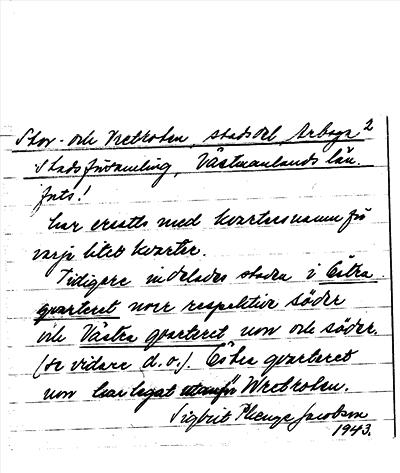 Stor- och Vretroten, stadsdel, Arboga 2
stadsförsamling, Västmanlands län.
forts!
har ersatts med kvartersnamn på
varje litet kvarter.
Tidigare indelades staden i Östra
qvarteret norr respektive söder
och Västra qvarteret norr och söder.
(se vidare d.o.). Östra qvarteret
norr har legat utanför Vretroten.
Sigbrit Plenge Jacobson
1943.